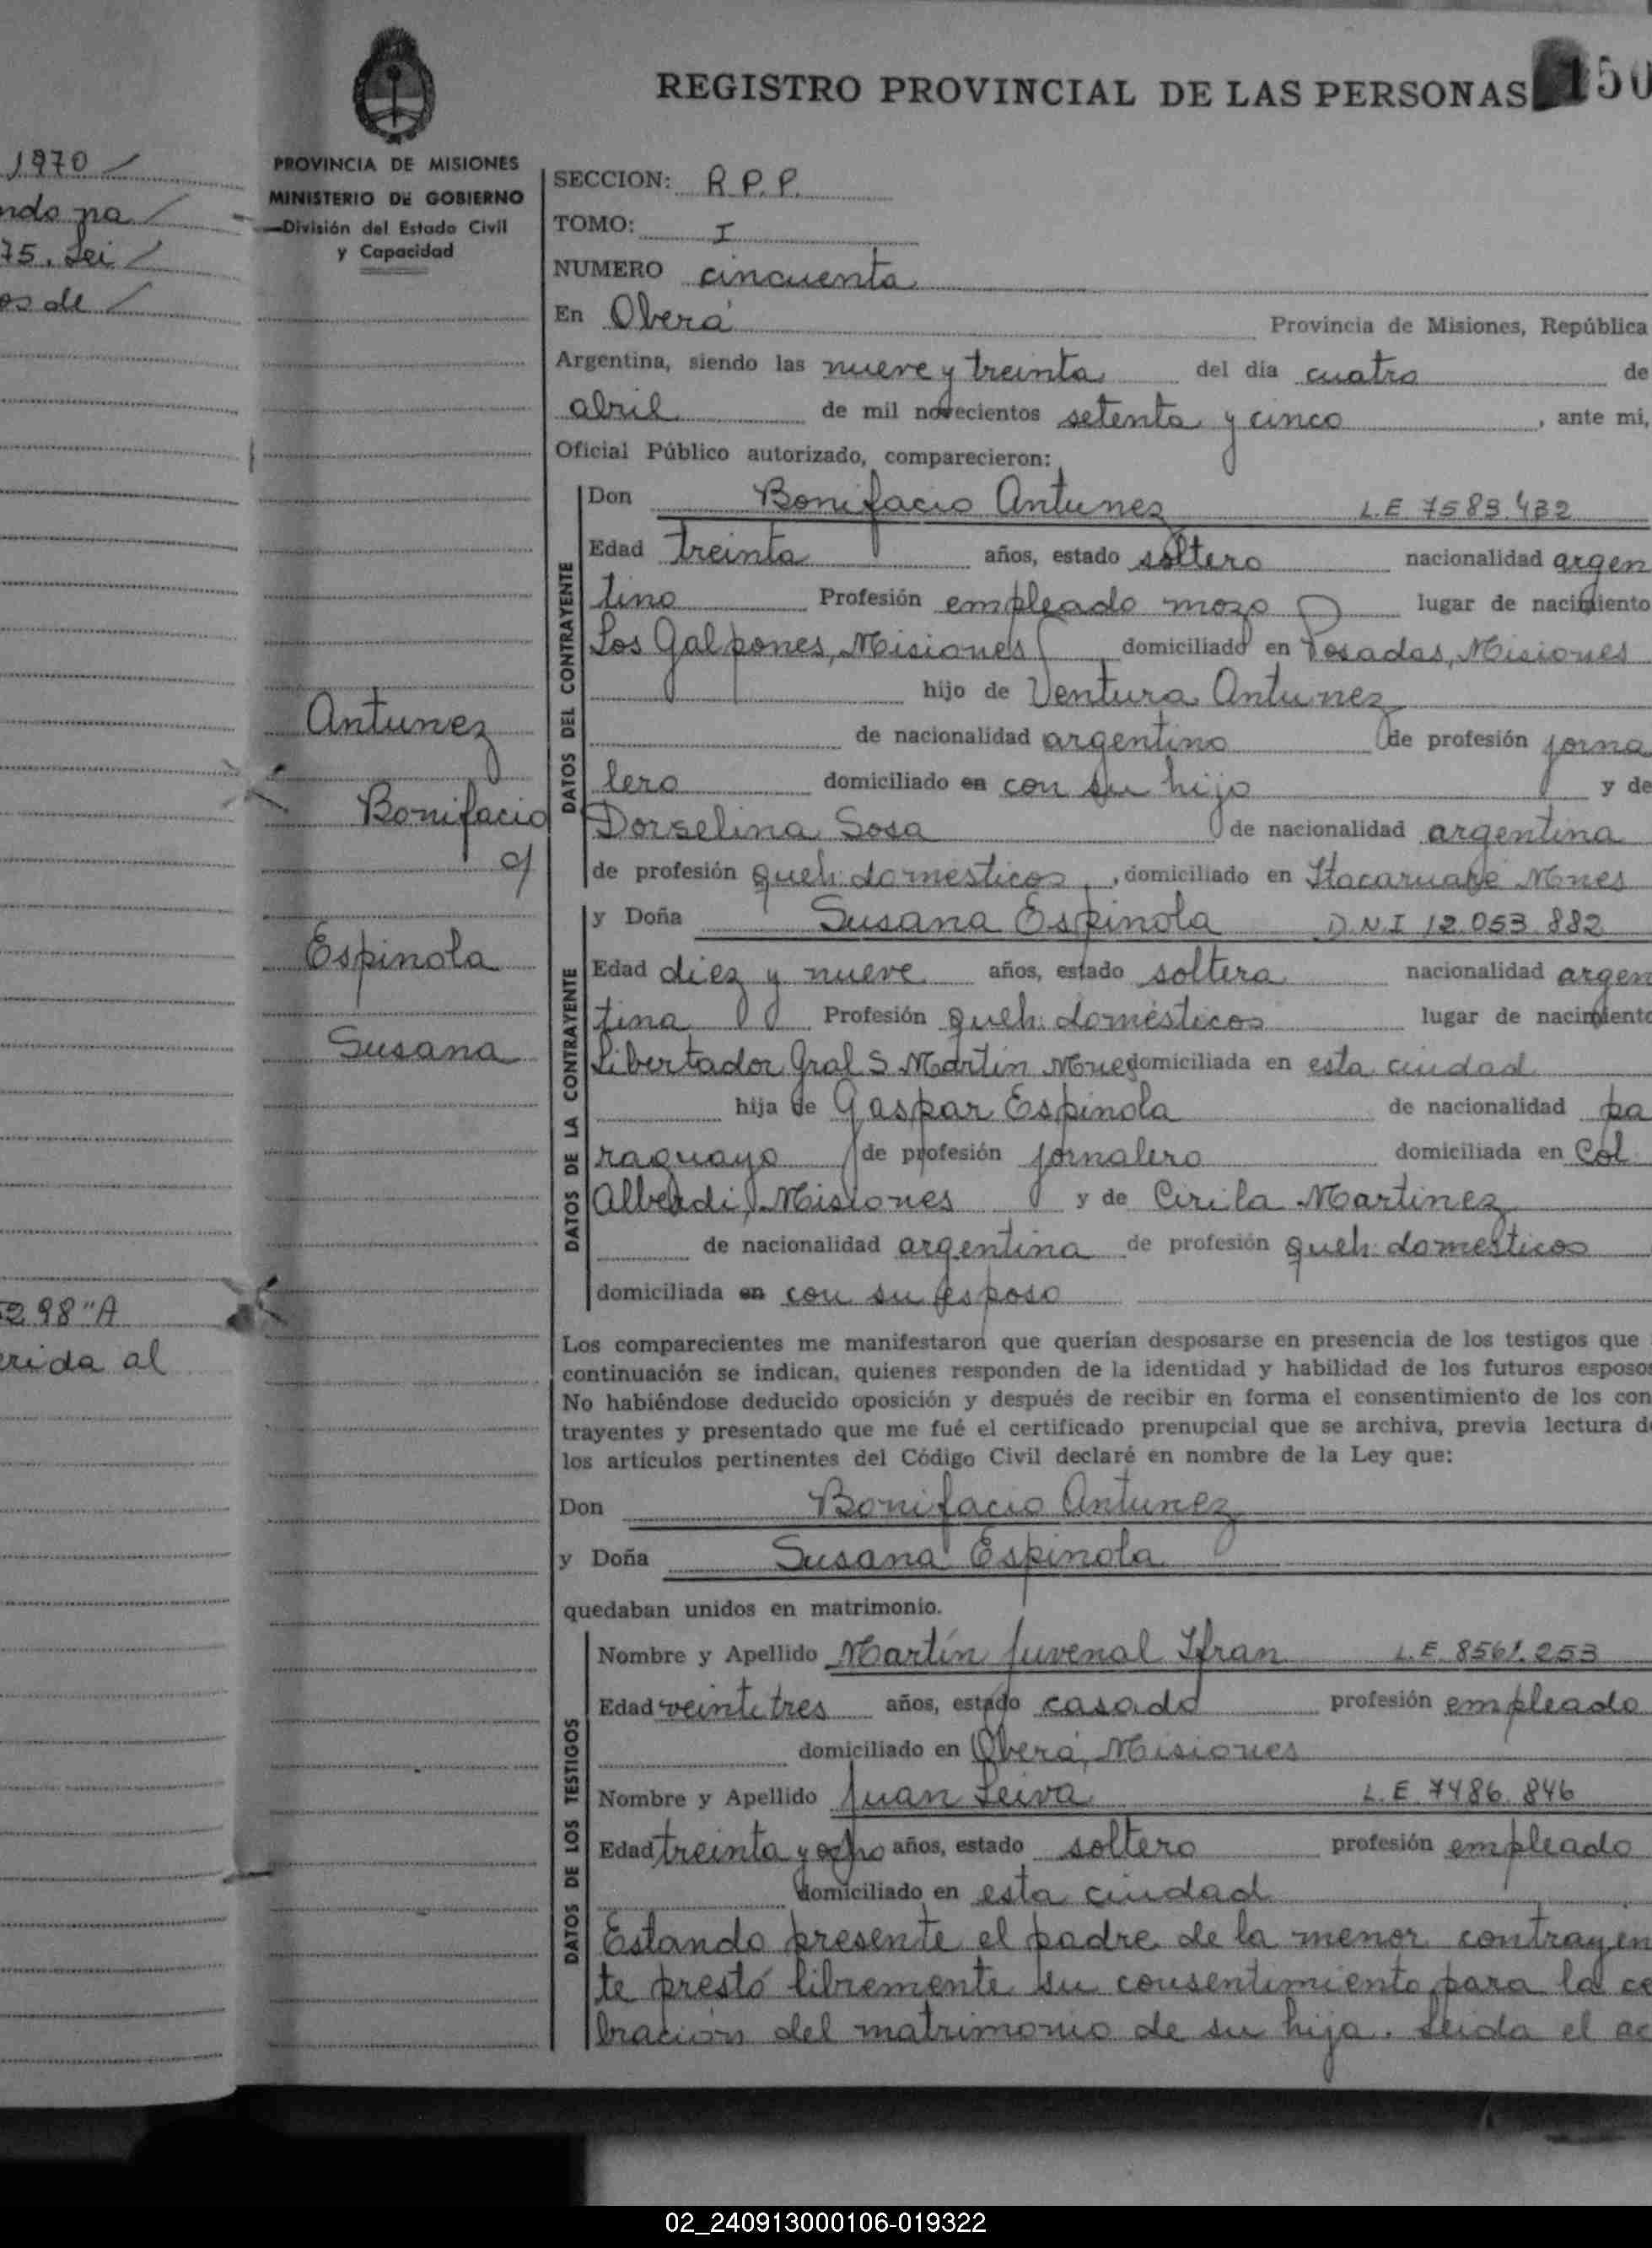 REGISTRO PROVINCIAL DE LAS PERSONAS 150
1970
PROVINCIA DE MISIONES
MINISTERIO DE GOBIERNO
División del Estado Civil
y Capacidad
ndo pa
75. Lei
os de
SECCION: R.P.P.
TOMO: I
NUMERO cincuenta
En Oberá Provincia de Misiones, República
Argentina, siendo las nueve y treinta del día cuatro de
abril de mil novecientos setenta y cinco, ante mi,
Oficial Público autorizado, comparecieron:
DATOS DEL CONTRAYENTE
Don Bonifacio Antunez L.E 7583.432
Edad treinta años, estado soltero nacionalidad argen
tino Profesión empleado mozo lugar de nacimiento
Los Galpones, Misiones domiciliado en Posadas, Misiones
hijo de Ventura Antunez
de nacionalidad argentino de profesión jorna
lero domiciliado en con su hijo y de
Dorselina Sosa de nacionalidad argentina
de profesión queh. domesticos, domiciliado en Itacaruaré Mnes
Antunez
Bonifacio
c/
Espinola
Susana
DATOS DE LA CONTRAYENTE
y Doña Susana Espinola D.N.I 12.053.882
Edad diez y nueve años, estado soltera nacionalidad argen
tina Profesión queh. domésticos lugar de nacimiento
Libertador Gral S. Martin Mnes domiciliada en esta ciudad
hija de Gaspar Espinola de nacionalidad pa
raguayo de profesión jornalero domiciliada en Col.
Alberdi, Misiones y de Cirila Martinez
de nacionalidad argentina de profesión queh. domesticos
domiciliada en con su esposo
298"A
erida al
Los comparecientes me manifestaron que querían desposarse en presencia de los testigos que
continuación se indican, quienes responden de la identidad y habilidad de los futuros esposos
No habiéndose deducido oposición y después de recibir en forma el consentimiento de los con
trayentes y presentado que me fué el certificado prenupcial que se archiva, previa lectura de
los artículos pertinentes del Código Civil declaré en nombre de la Ley que:
Don Bonifacio Antunez
y Doña Susana Espinola
quedaban unidos en matrimonio.
DATOS DE LOS TESTIGOS
Nombre y Apellido Martín Juvenal Ifran L.E. 8561.253
Edad veintitres años, estado casado profesión empleado
domiciliado en Oberá, Misiones
Nombre y Apellido Juan Leiva L.E. 7486.846
Edad treinta y ocho años, estado soltero profesión empleado
domiciliado en esta ciudad
Estando presente el padre de la menor contrayen
te prestó libremente su consentimiento para la ce
bración del matrimonio de su hija. Leida el ac
02_240913000106-019322